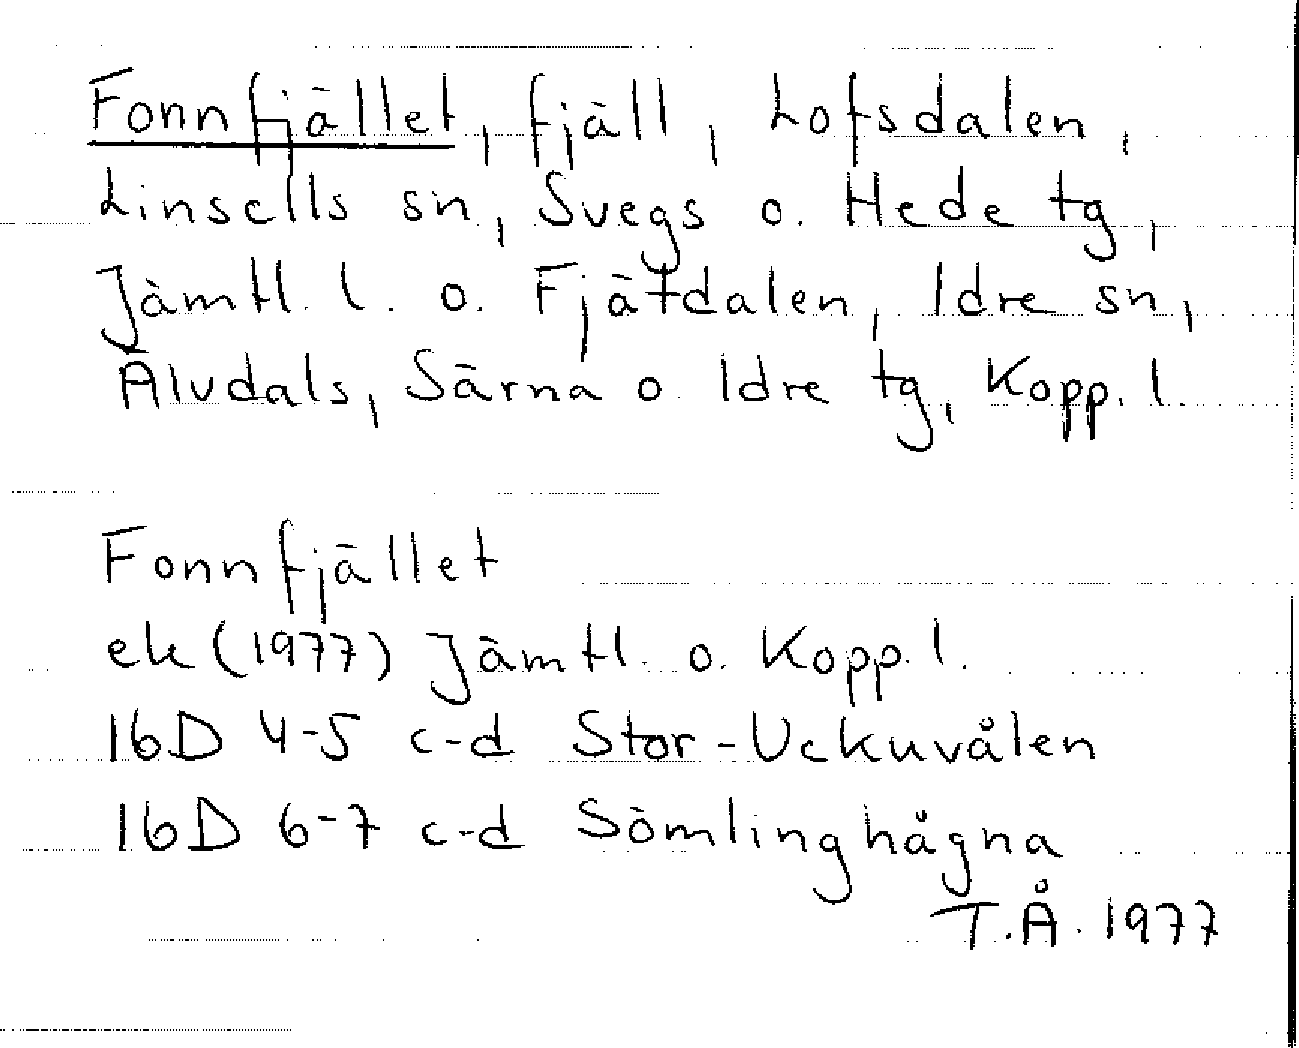 Fonnfjället, fjäll, Lofsdalen,
Linsells sn, Svegs o. Hede tg,
Jämtl. l. o. Fjätdalen, Idre sn,
Älvdals, Särna o Idre tg, Kopp. l.
Fonnfjället
ek (1977) Jämtl. o. Kopp. l.
16D 4-5 c-d Stor-Uckuvålen
16D 6-7 c-d Sömlinghågna
T.Å. 1977